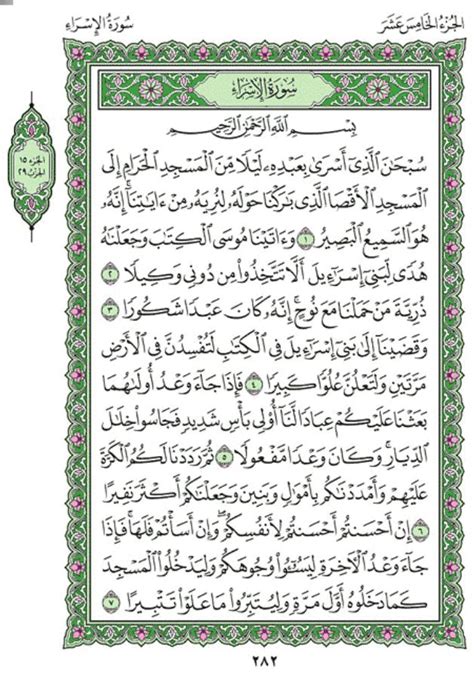 الجزء الخامس عشر
سورة الإسراء
سُورَةُ الإِسْرَاءِ
بِسْمِ اللَّهِ الرَّحْمَٰنِ الرَّحِيمِ
الجزء ١٥
الحزب ٢٩
سُبْحَٰنَ ٱلَّذِىٓ أَسْرَىٰ بِعَبْدِهِۦ لَيْلًا مِّنَ ٱلْمَسْجِدِ ٱلْحَرَامِ إِلَى
ٱلْمَسْجِدِ ٱلْأَقْصَا ٱلَّذِى بَٰرَكْنَا حَوْلَهُۥ لِنُرِيَهُۥ مِنْ ءَايَٰتِنَآ ۚ إِنَّهُۥ
هُوَ ٱلسَّمِيعُ ٱلْبَصِيرُ ١ وَءَاتَيْنَا مُوسَى ٱلْكِتَٰبَ وَجَعَلْنَٰهُ
هُدًى لِّبَنِىٓ إِسْرَٰٓءِيلَ أَلَّا تَتَّخِذُوا۟ مِن دُونِى وَكِيلًا ٢
ذُرِّيَّةَ مَنْ حَمَلْنَا مَعَ نُوحٍ ۚ إِنَّهُۥ كَانَ عَبْدًا شَكُورًا ٣
وَقَضَيْنَآ إِلَىٰ بَنِىٓ إِسْرَٰٓءِيلَ فِى ٱلْكِتَٰبِ لَتُفْسِدُنَّ فِى ٱلْأَرْضِ
مَرَّتَيْنِ وَلَتَعْلُنَّ عُلُوًّا كَبِيرًا ٤ فَإِذَا جَآءَ وَعْدُ أُولَىٰهُمَا
بَعَثْنَا عَلَيْكُمْ عِبَادًا لَّنَآ أُو۟لِى بَأْسٍ شَدِيدٍ فَجَاسُوا۟ خِلَٰلَ
ٱلدِّيَارِ ۚ وَكَانَ وَعْدًا مَّفْعُولًا ٥ ثُمَّ رَدَدْنَا لَكُمُ ٱلْكَرَّةَ
عَلَيْهِمْ وَأَمْدَدْنَٰكُم بِأَمْوَٰلٍ وَبَنِينَ وَجَعَلْنَٰكُمْ أَكْثَرَ نَفِيرًا
٦ إِنْ أَحْسَنتُمْ أَحْسَنتُمْ لِأَنفُسِكُمْ ۖ وَإِنْ أَسَأْتُمْ فَلَهَا ۚ فَإِذَا
جَآءَ وَعْدُ ٱلْءَاخِرَةِ لِيَسُۥٓـُٔوا۟ وُجُوهَكُمْ وَلِيَدْخُلُوا۟ ٱلْمَسْجِدَ
كَمَا دَخَلُوهُ أَوَّلَ مَرَّةٍ وَلِيُتَبِّرُوا۟ مَا عَلَوْا۟ تَتْبِيرًا ٧
٢٨٢